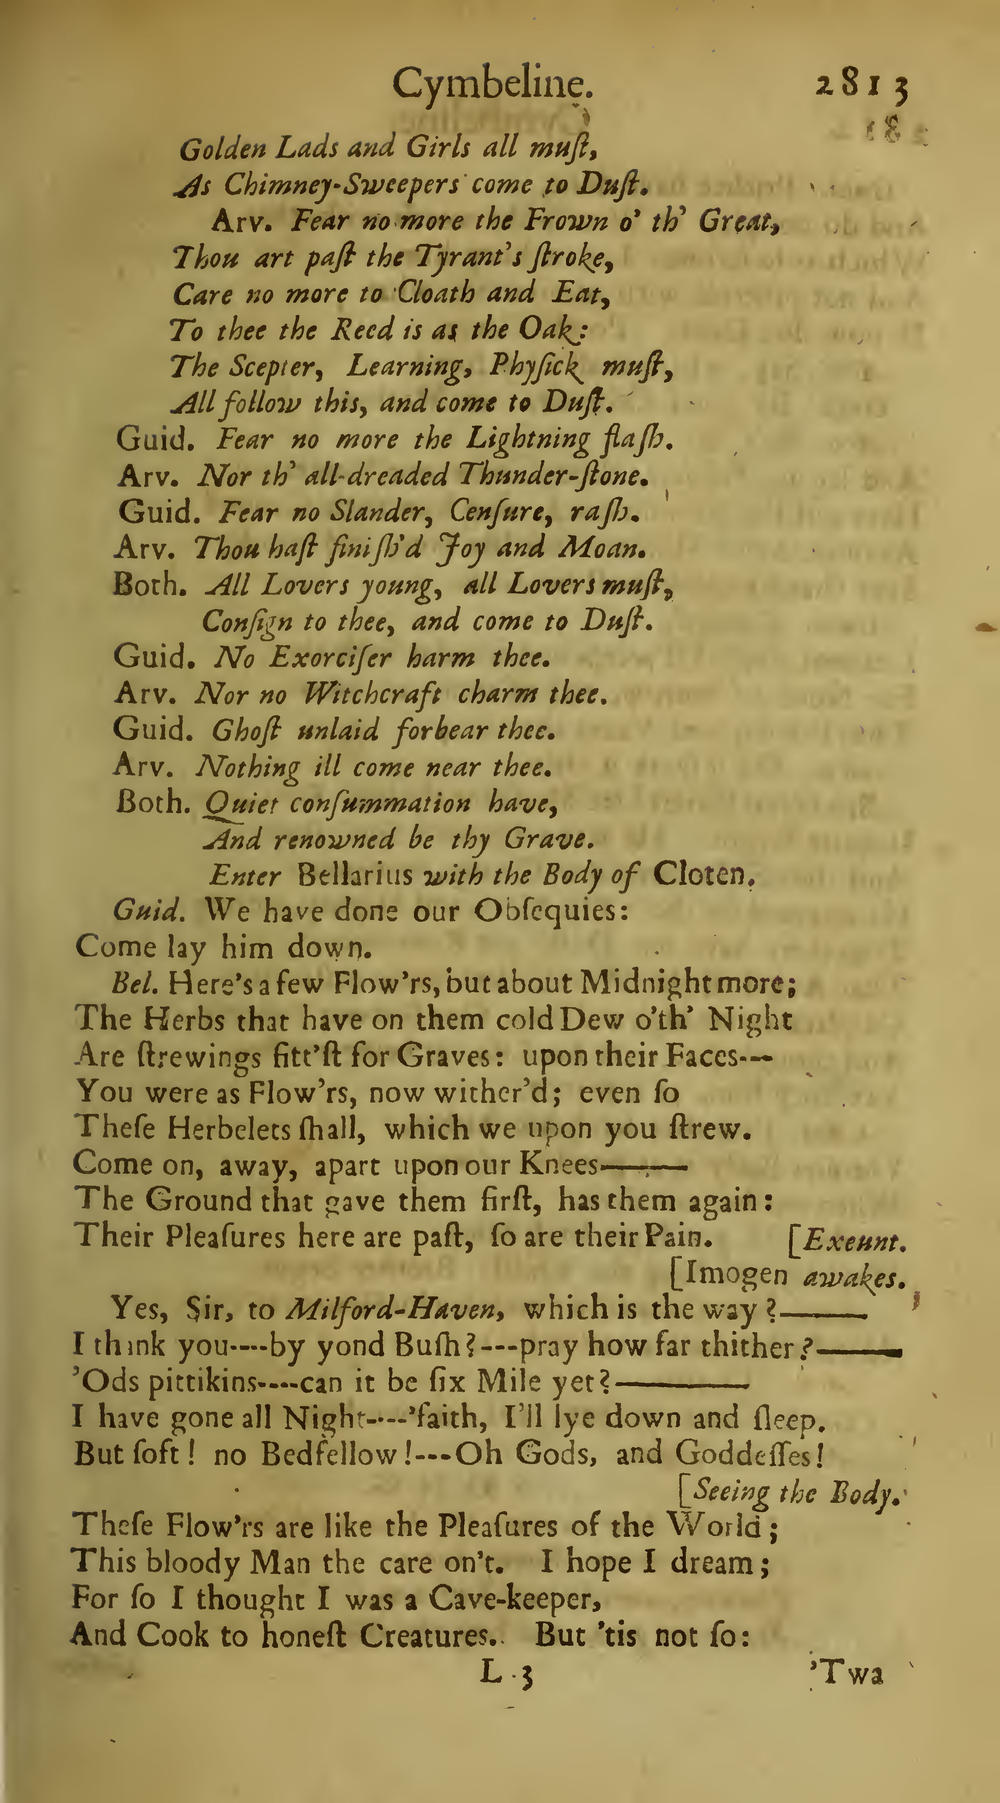 Cymbeline. 2813
Golden Lads and Girls all muſt,
As Chimney-Sweepers come to Duſt.
Arv. Fear no more the Frown o' th' Great,
Thou art paſt the Tyrant's ſtroke,
Care no more to Cloath and Eat,
To thee the Reed is as the Oak:
The Scepter, Learning, Phyſick muſt,
All follow this, and come to Duſt.
Guid. Fear no more the Lightning flaſh.
Arv. Nor th' all-dreaded Thunder-ſtone.
Guid. Fear no Slander, Cenſure, raſh.
Arv. Thou haſt finiſh'd Joy and Moan.
Both. All Lovers young, all Lovers muſt,
Conſign to thee, and come to Duſt.
Guid. No Exorciſer harm thee.
Arv. Nor no Witchcraft charm thee.
Guid. Ghoſt unlaid forbear thee.
Arv. Nothing ill come near thee.
Both. Quiet conſummation have,
And renowned be thy Grave.
Enter Bellarius with the Body of Cloten.
Guid. We have done our Obſequies:
Come lay him down.
Bel. Here's a few Flow'rs, but about Midnight more;
The Herbs that have on them cold Dew o'th' Night
Are ſtrewings fitt'ſt for Graves: upon their Faces---
You were as Flow'rs, now wither'd; even ſo
Theſe Herbelets ſhall, which we upon you ſtrew.
Come on, away, apart upon our Knees———
The Ground that gave them firſt, has them again:
Their Pleaſures here are paſt, ſo are their Pain. [Exeunt.
[Imogen awakes.
Yes, Sir, to Milford-Haven, which is the way?———
I think you----by yond Buſh?---pray how far thither?———
'Ods pittikins----can it be ſix Mile yet?———
I have gone all Night----'faith, I'll lye down and ſleep.
But ſoft! no Bedfellow!---Oh Gods, and Goddeſſes!
[Seeing the Body.
Theſe Flow'rs are like the Pleaſures of the World;
This bloody Man the care on't. I hope I dream;
For ſo I thought I was a Cave-keeper,
And Cook to honeſt Creatures. But 'tis not ſo:
L 3 'Twa